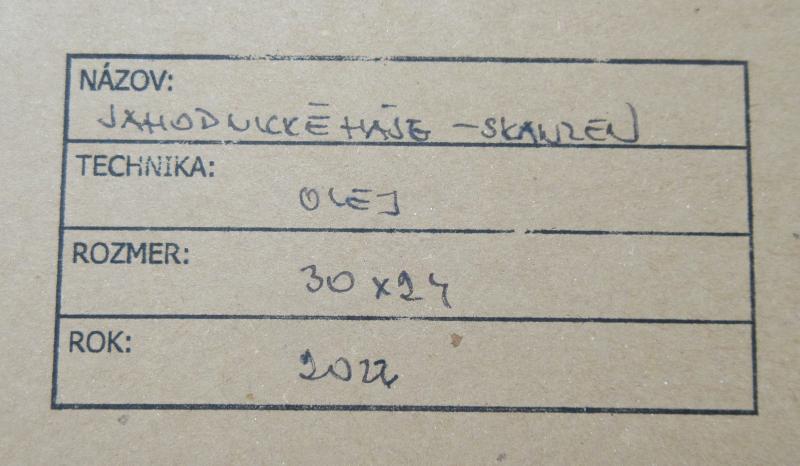 NÁZOV:
JAHODNICKÉ HÁJE - SKANZEN
TECHNIKA:
OLEJ
ROZMER:
30 x 24
ROK:
2022